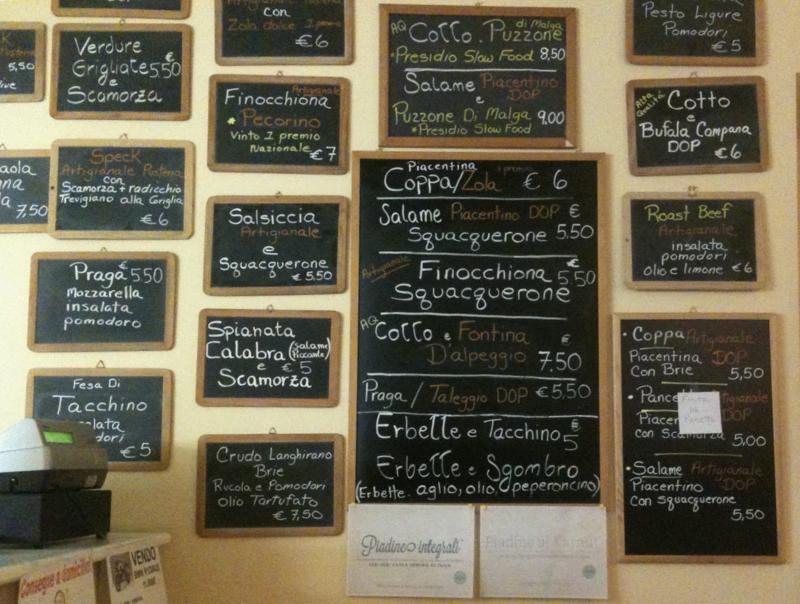 5,50
7,50
Verdure
€
Grigliate 5,50
e
Scamorza
Speck
Artigianale
con
Scamorza + radicchio
Trevigiano alla Griglia
€ 6
Praga € 5,50
mozzarella
insalata
pomodoro
Fesa Di
Tacchino
€ 5
con
Zola dolce
€ 6
Artigianale
Finocchiona
* Pecorino
Vinto I premio
Nazionale
€ 7
Salsiccia
Artigianale
e
Squacquerone
€ 5,50
Spianata
Calabra (salame Piccante)
e € 5
Scamorza
Crudo Langhirano
Brie
Rucola e Pomodori
Olio Tartufato
€ 7,50
AQ Cotto e Puzzone di Malga
*Presidio Slow Food 8,50
Salame Piacentino
e DOP
Puzzone Di Malga 9,00
*Presidio Slow Food
Piacentina
Coppa/Zola € 6
Salame Piacentino DOP €
Squacquerone 5,50
Artigianale
Finocchiona €
5,50
Squacquerone
AQ
Cotto e Fontina €
D'alpeggio 7,50
Praga / Taleggio DOP € 5,50
Erbette e Tacchino €
5
Erbette e Sgombro
(Erbette: aglio, olio, peperoncino)
Piadine integrali
Piadine al Kamut
Pesto Ligure
Pomodori
€ 5
Alta
Qualità
Cotto
e
Bufala Campana
DOP
€ 6
Roast Beef
Artigianale
insalata
pomodori
olio e limone € 6
• Coppa Artigianale
Piacentina DOP
con Brie 5,50
DOP
con Scamorza 5,00
• Salame Artigianale
Piacentino DOP
con squacquerone
5,50
Consegne a domicilio!
VENDO